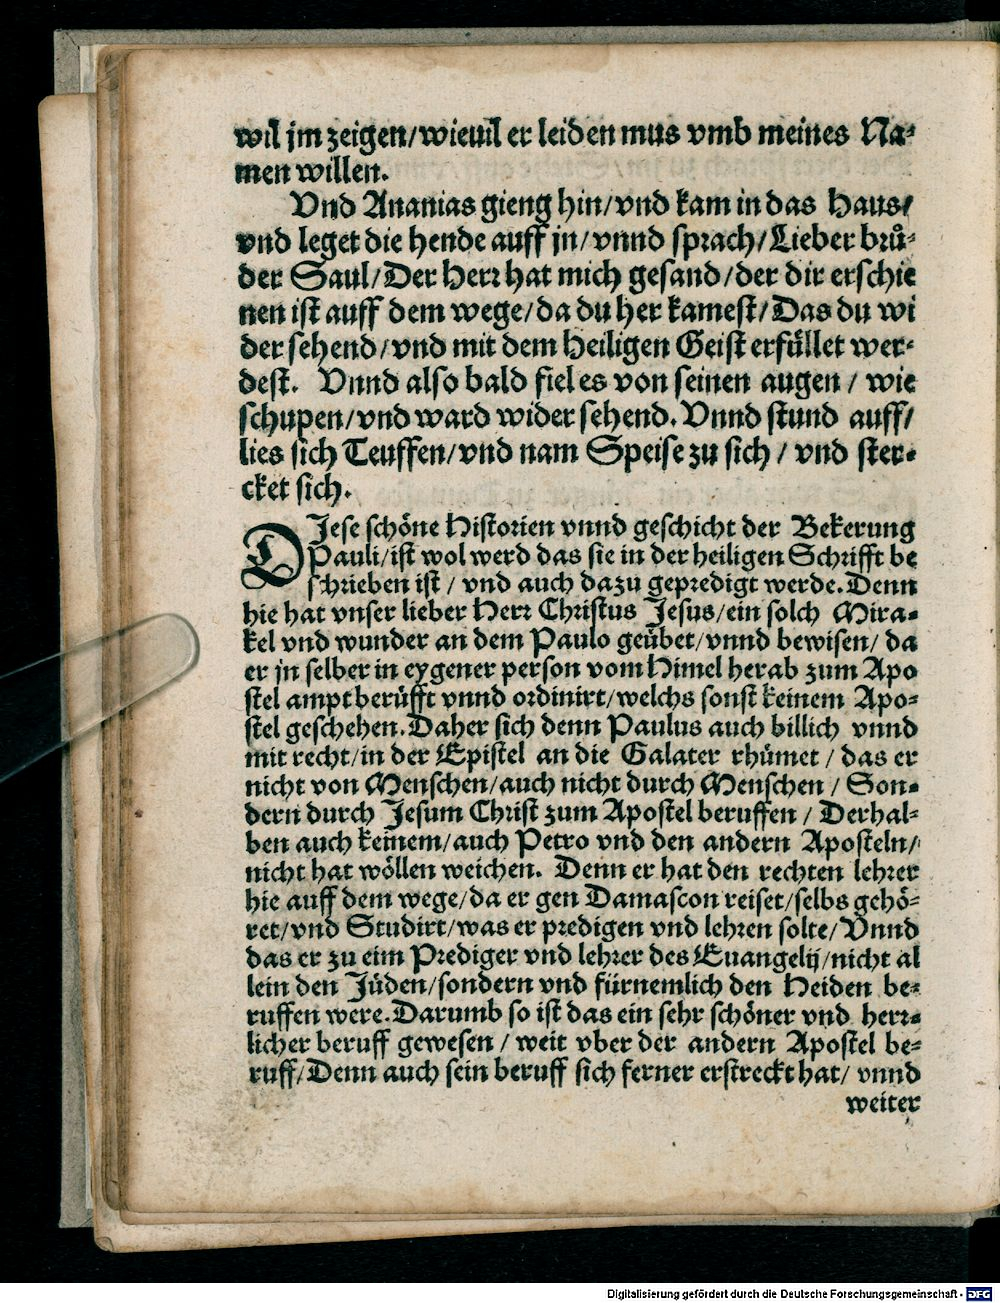 wil jm zeigen/wieuil er leiden mus vmb meines Na-
men willen.
Vnd Ananias gieng hin/vnd kam in das Haus/
vnd leget die hende auff jn/vnnd sprach/Lieber brů-
der Saul/Der Herr hat mich gesand/der dir erschie
nen ist auff dem wege/da du her kamest/Das du wi
der sehend/vnd mit dem Heiligen Geist erfüllet wer-
dest. Vnnd also bald fiel es von seinen augen / wie
schupen/vnd ward wider sehend. Vnnd stund auff/
lies sich Teuffen/vnd nam Speise zu sich / vnd ster-
cket sich.
DJese schöne Historien vnnd geschicht der Bekerung
Pauli/ist wol werd das sie in der heiligen Schrifft be
schrieben ist / vnd auch dazu gepredigt werde. Denn
hie hat vnser lieber Herr Christus Jesus/ein solch Mira-
kel vnd wunder an dem Paulo geübet/vnnd bewisen/ da
er jn selber in eygener person vom Himel herab zum Apo
stel ampt berüfft vnnd ordinirt/welchs sonst keinem Apo-
stel geschehen. Daher sich denn Paulus auch billich vnnd
mit recht/in der Epistel an die Galater rhümet / das er
nicht von Menschen/auch nicht durch Menschen / Son-
dern durch Jesum Christ zum Apostel beruffen / Derhal-
ben auch keinem/auch Petro vnd den andern Aposteln/
nicht hat wöllen weichen. Denn er hat den rechten lehrer
hie auff dem wege/da er gen Damascon reiset/selbs gehö-
ret/vnd Studirt/was er predigen vnd lehren solte/Vnnd
das er zu eim Prediger vnd lehrer des Euangelij/nicht al
lein den Jüden/sondern vnd fürnemlich den Heiden be-
ruffen were. Darumb so ist das ein sehr schöner vnd herr-
licher beruff gewesen / weit vber der andern Apostel be-
ruff/Denn auch sein beruff sich ferner erstreckt hat/ vnnd
weiter
Digitalisierung gefördert durch die Deutsche Forschungsgemeinschaft - DFG